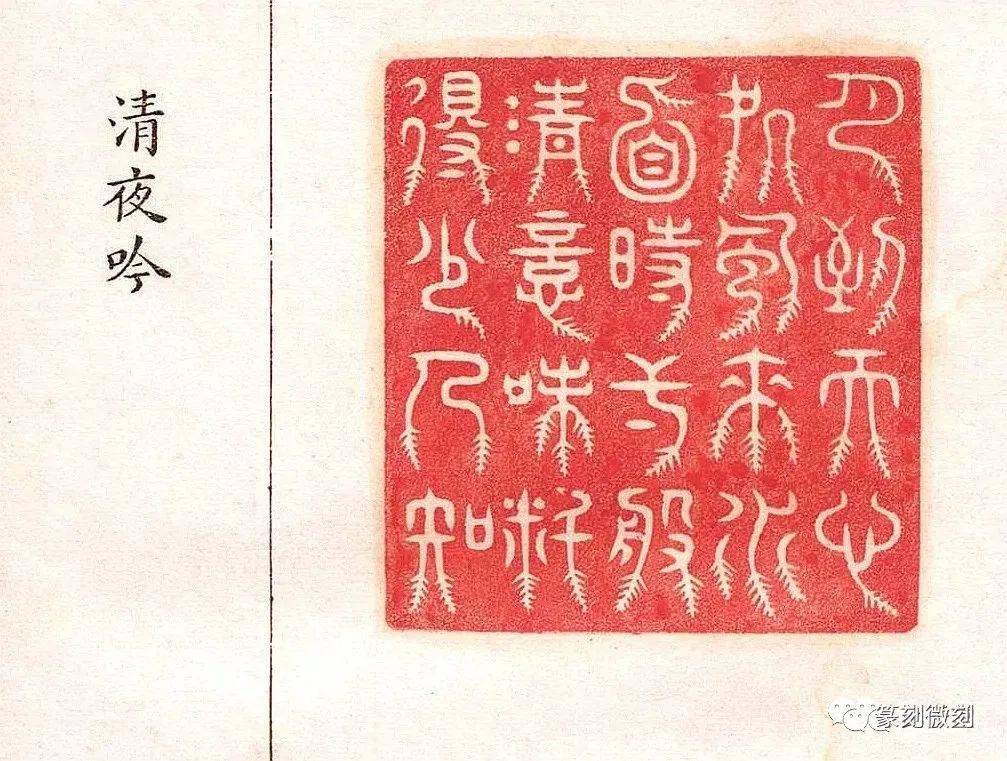 月到天心
處風來水
面時一般
清意味料
得少人知
清夜吟
篆刻微刻